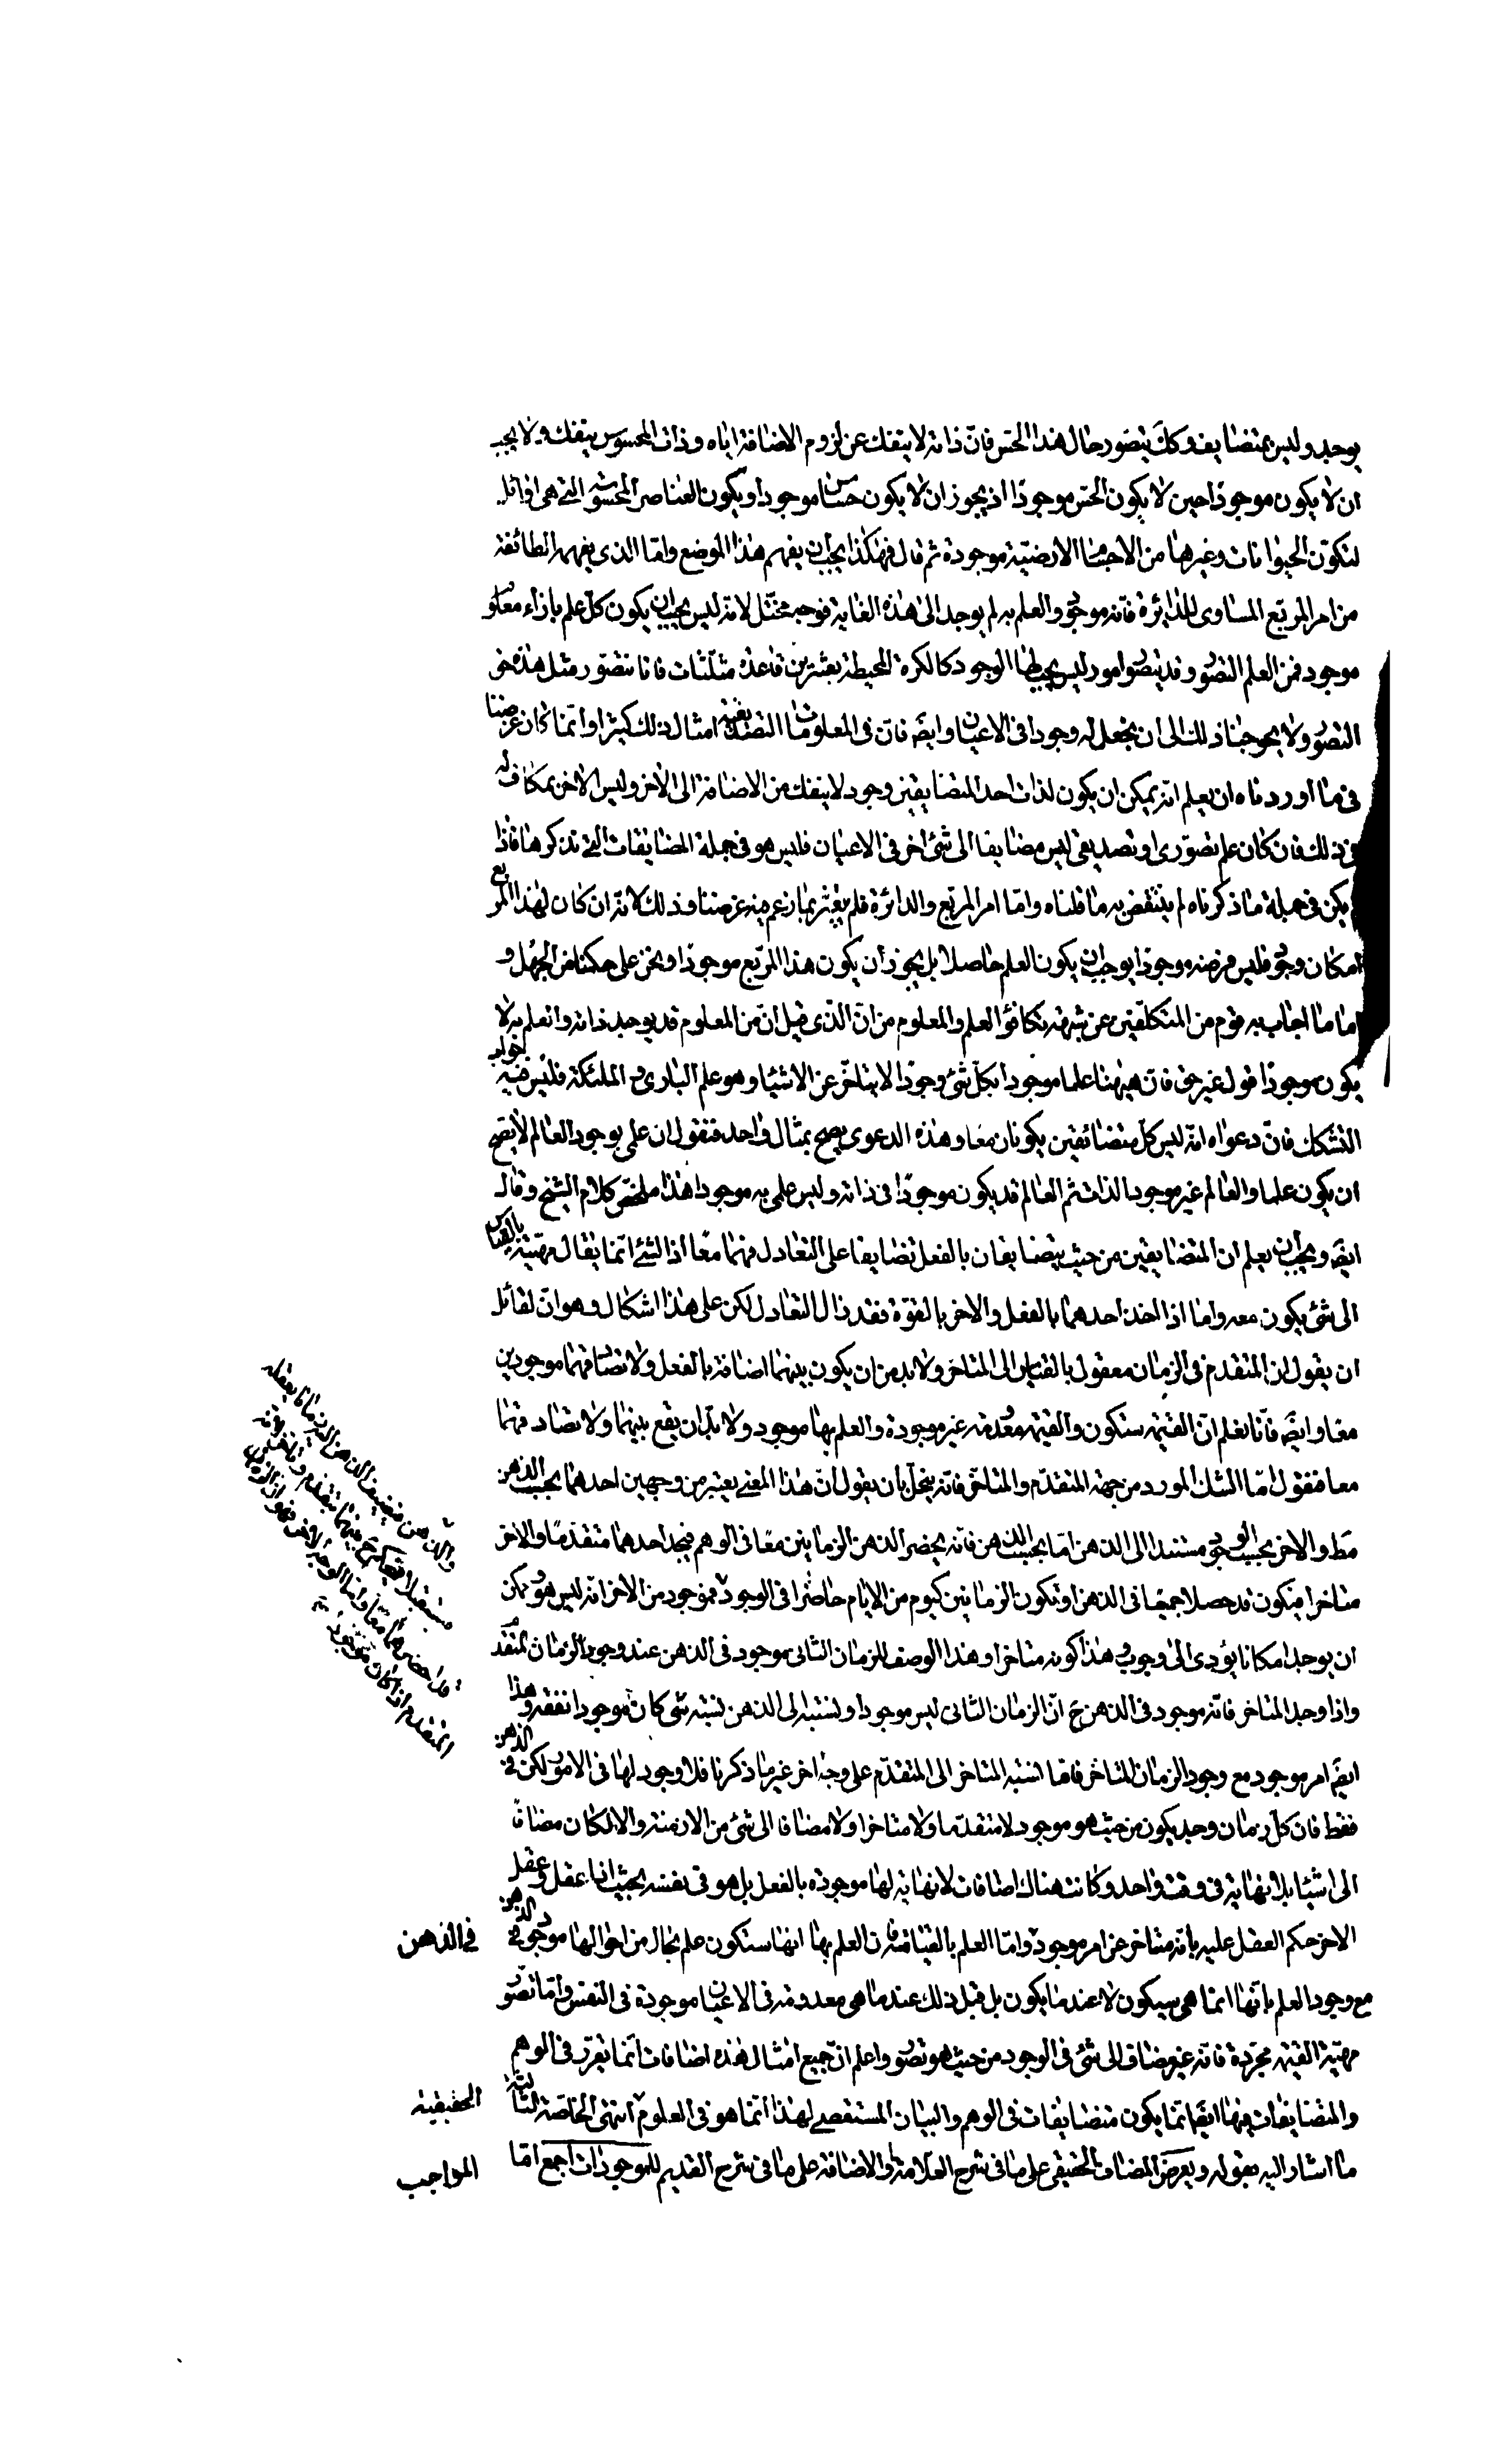 يوجد وليس بمتضايف وكك يتصور حال هذا الحس فان ذاته لا ينفك عن لزوم الاضافة اياه وذات المحسوس ينفك ولا يجب
ان لا يكون موجودا حين لا يكون الحس موجودا اذ يجوز ان لا يكون حساس ما موجودا ويكون العناصر المحسوسة التي هي اوائل
لتكون الحيوانات وغيرها من الاجسام الارضية موجودة ثم قال فهكذا يجب ان يفهم هذا الموضع واما الذى يفهمه الطائفة
من امر المربع المساوى للدائرة فانه موجود والعلم به لم يوجد الى هذه الغاية فوجه مختل لانه ليس يجب ان يكون كل علم بازاء معلو
موجود فمن العلم التصور وقد يتصور امور ليس يحيط بها الوجود كالكرة المحيطة بعشرين قاعدة مثلثات فانا نتصور مثل هذه حق
التصور ولا يحوجنا ذلك الى ان يجعل له وجودا فى الاعيان وايضا فان فى المعلومات التصديقية امثال ذلك كثيرا وانما كان غرضنا
فى ما اوردناه ان يعلم انه يمكن ان يكون لذات احد المتضايفين وجود لا ينفك من الاضافة الى الاخر وليس الاخر بمكاف له
فى ذلك فان كان علم تصورى او تصديقى ليس مضايفا الى شئ اخر فى الاعيان فليس هو فى جملة المضايفات التى نذكرها فاذا
يكن فى جملة ما ذكرناه لم ينتقض به ما قلناه واما امر المربع والدائرة فلم يغير بما زعم فيه غرضنا وذلك لانه ان كان لهذا المربع
امكان وجود فليس فرضه موجودا يوجب ان يكون العلم حاصلا بل يجوز ان يكون هذا المربع موجودا ونحن على حكمنا من الجهل و
اما ما اجاب به قوم من المتكلفين عن شبهة تكافؤ العلم والمعلوم من ان الذى قيل ان من المعلوم قد يوجد ذاته والعلم به لا
يكون موجودا قول غير حق فان هيهنا علما موجودا بكل شئ وجودا لا يتاخر عن الاشياء وهو علم البارى والملئكة فليس فيه جواب
التشكك فان دعواه انه ليس كل متضائفين يكونان معا وهذه الدعوى يصح بمثال واحد فنقول ان علمى بوجود العالم لا يصح
ان يكون علما والعالم غير موجود الذات ثم العالم قد يكون موجودا فى ذاته وليس علمى به موجودا هذا ملخص كلام الشيخ وقال
ايضا ويجب ان يعلم ان المتضايفين من حيث يتضايفان بالفعل تضايفا على التعادل فهما معا اذ الشئ انما يقال مهيته بالقياس
الى شئ يكون معه واما اذا اخذ احدهما بالفعل والاخر بالقوة فقد زال التعادل لكن على هذا اشكال وهو ان لقائل
ان يقول ان المتقدم فى الزمان معقول بالقياس الى المتاخر ولا بد من ان يكون بينهما اضافة بالفعل ولا نصادفهما موجودين
معا وايضا فانا نعلم ان القيمة ستكون والقيمة معدومة غير موجودة والعلم بها موجود ولا بد ان يقع بينهما ولا نصادفهما
معا فنقول اما الشك المورد من جهة المتقدم والمتاخر فانه ينحل بان يقول ان هذا المعنى يعتبر من وجهين احدهما بحسب الذهن
مط والاخر بحسب الوجود مستندا الى الذهن اما بحسب الذهن فانه يحضر الذهن الزمانين معا فى الوهم فيجد احدهما متقدما والاخر
متاخرا فيكون قد حصلا جميعا فى الذهن او تكون الزمانين كيوم من الايام حاضرا فى الوجود فموجود من الاخر انه ليس هو يمكن
ان يوجد امكانا يؤدى الى وجوب وهذا كونه متاخرا وهذا الوصف للزمان الثانى موجود فى الذهن عند وجود الزمان المتقدم
واذا وجد المتاخر فانه موجود فى الذهن ح ان الزمان الثانى ليس موجودا ونسبته الى الذهن نسبة شئ كان موجودا نفقد وهذا
ايضا امر موجود مع وجود الزمان المتاخر فاما نسبة المتاخر الى المتقدم على وجه اخر غير ما ذكرنا فلا وجود لها فى الامور لكن فى الذهن
فقط فان كل زمان وجد يكون من حيث هو موجود لا متقدما ولا متاخرا ولا مضافا الى شئ من الازمنة والا لكان مضافا
الى اشياء بلا نهاية فى وقت واحد وكانت هناك اضافات لا نهاية لها موجودة بالفعل بل هو فى نفسه بحيث اذا عقل وعقل
الاخر حكم العقل عليه بانه متاخر عن امر موجود فى الذهن واما العلم بالقيامة فان العلم بها انها ستكون علم بحال من احوالها موجود فى الذهن
مع وجود العلم بانها انما هى سيكون لا عندما يكون بل قبل ذلك عندما هى معدومة فى الاعيان موجودة فى النفس واما تصور
مهية القيمة مجردة فانه غير مضاف الى شئ فى الوجود من حيث هو تصور واعلم ان جميع امثال هذه اضافات انما تقرر فى الوهم
والمتضايفات فيها ايضا انما يكون متضايفات فى الوهم والبيان المستقصى لهذا انما هو فى العلوم الحقيقية انتهى الخاصة الثالثة
ما اشار اليه بقوله ويعرض المضاف الحقيقى على ما فى شرح العلامة او الاضافة على ما فى شرح القديم للموجودات اجمع اما
فى الذهن
الحقيقية
المواجب